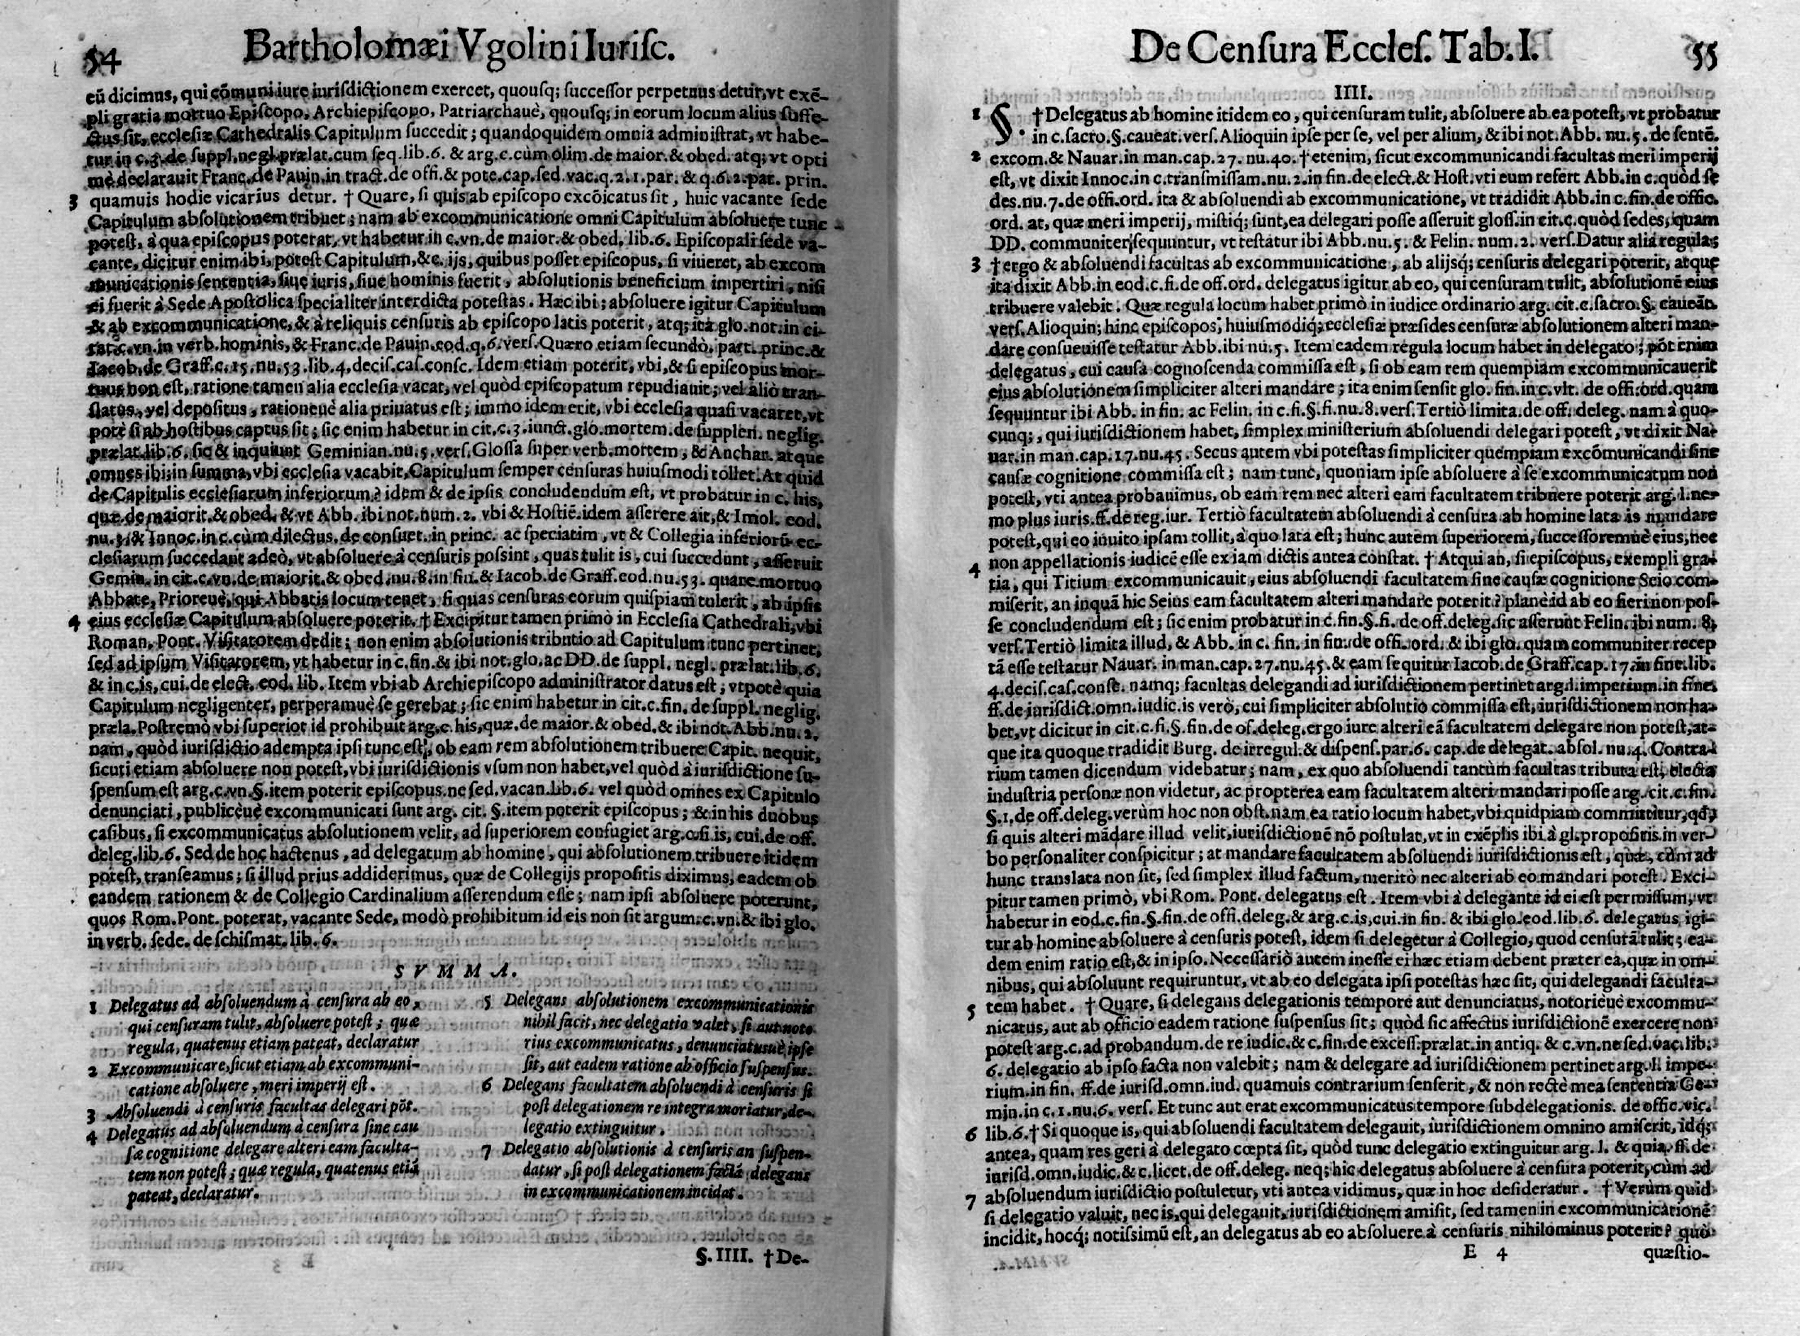 54
Bartholomæi Vgolini Iurisc.
eũ dicimus, qui cõmuni iure iurisdictionem exercet, quousq; successor perpetuus detur, vt exẽ-
pli gratia mortuo Episcopo, Archiepiscopo, Patriarchauè, quousq; in eorum locum alius suffe-
ctus sit, ecclesiæ Cathedralis Capitulum succedit; quandoquidem omnia administrat, vt habe-
tur in c. 3. de suppl. negl. prælat. cum seq. lib. 6. & arg. c. cùm olim. de maior. & obed. atq; vt opti
mè declarauit Franc. de Pauin. in tract. de offi. & pote. cap. sed. vac. q. 2. 1. par. & q. 6. 2. par. prin.
3 quamuis hodie vicarius detur. † Quare, si quis ab episcopo excõicatus sit, huic vacante sede
Capitulum absolutionem tribuet; nam ab excommunicatione omni Capitulum absoluere tunc
potest, à qua episcopus poterat, vt habetur in c. vn. de maior. & obed. lib. 6. Episcopali sede va-
cante, dicitur enim ibi, potest Capitulum, &c. ijs, quibus posset episcopus, si viueret, ab excom
municationis sententia, siue iuris, siue hominis fuerit, absolutionis beneficium impertiri, nisi
ei fuerit à Sede Apostolica specialiter interdicta potestas. Hæc ibi; absoluere igitur Capitulum
& ab excommunicatione, & à reliquis censuris ab episcopo latis poterit, atq; ita glo. not. in ci-
tat. c. vn. in verb. hominis, & Franc. de Pauin. eod. q. 6. vers. Quæro etiam secundò. part. princ. &
Iacob. de Graff. c. 15. nu. 53. lib. 4. decis. cas. consc. Idem etiam poterit, vbi, & si episcopus mor-
tuus non est, ratione tamen alia ecclesia vacat, vel quòd episcopatum repudiauit; vel aliò tran-
slatus, vel depositus, rationeuè alia priuatus est; immo idem erit, vbi ecclesia quasi vacaret, vt
potè si ab hostibus captus sit; sic enim habetur in cit. c. 3. iunct. glo. mortem. de suppleri. neglig.
prælat. lib. 6. sic & inquiunt Geminian. nu. 5. vers. Glossa super verb. mortem; & Anchar. atque
omnes ibi; in summa, vbi ecclesia vacabit, Capitulum semper censuras huiusmodi tollet. At quid
de Capitulis ecclesiarum inferiorum? idem & de ipsis concludendum est, vt probatur in c. his,
quæ. de maiorit. & obed. & vt Abb. ibi not. num. 2. vbi & Hostiẽ. idem asserere ait, & Imol. eod.
nu. 3. & Innoc. in c. cùm dilectus. de consuet. in princ. ac speciatim, vt & Collegia inferiorũ ec-
clesiarum succedant adeò, vt absoluere à censuris possint, quas tulit is, cui succedunt, asseruit
Gemin. in cit. c. vn. de maiorit. & obed. nu. 8. in fin. & Iacob. de Graff. eod. nu. 53. quare mortuo
Abbate, Prioreuè, qui Abbatis locum tenet, si quas censuras eorum quispiam tulerit, ab ipsis
4 eius ecclesiæ Capitulum absoluere poterit. † Excipitur tamen primò in Ecclesia Cathedrali, vbi
Roman. Pont. Visitatorem dedit; non enim absolutionis tributio ad Capitulum tunc pertinet,
sed ad ipsum Visitatorem, vt habetur in c. fin. & ibi not. glo. ac DD. de suppl. negl. prælat. lib. 6.
& in c. is, cui. de elect. eod. lib. Item vbi ab Archiepiscopo administrator datus est; vtpotè quia
Capitulum negligenter, perperamuè se gerebat; sic enim habetur in cit. c. fin. de suppl. neglig.
præla. Postremò vbi superior id prohibuit arg. c. his, quæ. de maior. & obed. & ibi not. Abb. nu. 2.
nam, quòd iurisdictio adempta ipsi tunc est, ob eam rem absolutionem tribuere Capit. nequit,
sicuti etiam absoluere non potest, vbi iurisdictionis vsum non habet, vel quòd à iurisdictione su-
spensum est arg. c. vn. §. item poterit episcopus. ne sed. vacan. lib. 6. vel quòd omnes ex Capitulo
denunciati, publicèquè excommunicati sunt arg. cit. §. item poterit episcopus; & in his duobus
casibus, si excommunicatus absolutionem velit, ad superiorem confugiet arg. c. si is, cui. de off.
deleg. lib. 6. Sed de hoc hactenus, ad delegatum ab homine, qui absolutionem tribuere itidem
potest, transeamus; si illud prius addiderimus, quæ de Collegijs propositis diximus, eadem ob
eandem rationem & de Collegio Cardinalium asserendum esse; nam ipsi absoluere poterunt,
quos Rom. Pont. poterat, vacante Sede, modò prohibitum id eis non sit argum. c. vn. & ibi glo.
in verb. sede. de schismat. lib. 6.
SVMMA.
1 Delegatus ad absoluendum à censura ab eo,
qui censuram tulit, absoluere potest; quæ
regula, quatenus etiam pateat, declaratur
2 Excommunicare, sicut etiam ab excommuni-
catione absoluere, meri imperij est.
3 Absoluendi à censuris facultas delegari pōt.
4 Delegatus ad absoluendum à censura sine cau
sæ cognitione delegare alteri eam faculta-
tem non potest; quæ regula, quatenus etiã
pateat, declaratur.
5 Delegans absolutionem excommunicationis
nihil facit, nec delegatio valet, si aut noto
rius excommunicatus, denunciatusuè ipse
sit, aut eadem ratione ab officio suspensus.
6 Delegans facultatem absoluendi à censuris si
post delegationem re integra moriatur, de-
legatio extinguitur.
7 Delegatio absolutionis à censuris an suspen-
datur, si post delegationem factã delegans
in excommunicationem incidat.
§. IIII. † De-
De Censura Eccles. Tab. I.
55
IIII.
1 §. † Delegatus ab homine itidem eo, qui censuram tulit, absoluere ab ea potest, vt probatur
in c. sacro. §. caueat. vers. Alioquin ipse per se, vel per alium, & ibi not. Abb. nu. 5. de sentẽ.
2 excom. & Nauar. in man. cap. 27. nu. 40. † etenim, sicut excommunicandi facultas meri imperij
est, vt dixit Innoc. in c. transmissam. nu. 2. in fin. de elect. & Host. vti eum refert Abb. in c. quòd se
des. nu. 7. de offi. ord. ita & absoluendi ab excommunicatione, vt tradidit Abb. in c. fin. de offic.
ord. at, quæ meri imperij, mistiq; sunt, ea delegari posse asseruit gloss. in cit. c. quòd sedes, quam
DD. communiter sequuntur, vt testatur ibi Abb. nu. 5. & Felin. num. 2. vers. Datur alia regula;
3 † ergo & absoluendi facultas ab excommunicatione, ab alijsq; censuris delegari poterit, atque
ita dixit Abb. in eod. c. fi. de off. ord. delegatus igitur ab eo, qui censuram tulit, absolutionẽ eius
tribuere valebit. Quæ regula locum habet primò in iudice ordinario arg. cit. c. sacro. §. caueãt.
vers. Alioquin; hinc episcopos, huiusmodiq; ecclesiæ præsides censuræ absolutionem alteri man-
dare consueuisse testatur Abb. ibi nu. 5. Item eadem regula locum habet in delegato; põt enim
delegatus, cui causa cognoscenda commissa est, si ob eam rem quempiam excommunicauerit
eius absolutionem simpliciter alteri mandare; ita enim sensit glo. fin. in c. vlt. de offi. ord. quam
sequuntur ibi Abb. in fin. ac Felin. in c. fi. §. fi. nu. 8. vers. Tertiò limita. de off. deleg. nam à quo-
cunq;, qui iurisdictionem habet, simplex ministerium absoluendi delegari potest, vt dixit Na-
uar. in man. cap. 17. nu. 45. Secus autem vbi potestas simpliciter quempiam excõmunicandi sine
causæ cognitione commissa est; nam tunc, quoniam ipse absoluere à se excommunicatum non
potest, vti antea probauimus, ob eam rem nec alteri eam facultatem tribuere poterit arg. l. ne-
mo plus iuris. ff. de reg. iur. Tertiò facultatem absoluendi à censura ab homine lata is mandare
potest, qui eo inuito ipsam tollit, à quo lata est; hunc autem superiorem, successoremuè eius, nec
non appellationis iudicẽ esse ex iam dictis antea constat. † Atqui an, si episcopus, exempli gra-
4 tia, qui Titium excommunicauit, eius absoluendi facultatem sine causæ cognitione Seio com-
miserit, an inquã hic Seius eam facultatem alteri mandare poterit? planè id ab eo fieri non pos-
se concludendum est; sic enim probatur in c. fin. §. fi. de off. deleg. sic asserunt Felin. ibi num. 8.
vers. Tertiò limita illud, & Abb. in c. fin. in fin. de offi. ord. & ibi glo. quam communiter recep
tã esse testatur Nauar. in man. cap. 27. nu. 45. & eam sequitur Iacob. de Graff. cap. 17. in fine. lib.
4. decis. cas. consc. namq; facultas delegandi ad iurisdictionem pertinet arg. l. imperium. in fine.
ff. de iurisdict. omn. iudic. is verò, cui simpliciter absolutio commissa est, iurisdictionem non ha-
bet, vt dicitur in cit. c. fi. §. fin. de of. deleg. ergo iure alteri eã facultatem delegare non potest, at-
que ita quoque tradidit Burg. de irregul. & dispens. par. 6. cap. de delegat. absol. nu. 4. Contra-
rium tamen dicendum videbatur; nam, ex quo absoluendi tantùm facultas tributa est, electa
industria personæ non videtur, ac propterea eam facultatem alteri mandari posse arg. cit. c. fin.
§. 1. de off. deleg. verùm hoc non obst. nam ea ratio locum habet, vbi quidpiam committitur, qđ,
si quis alteri mãdare illud velit, iurisdictionẽ nõ postulat, vt in exẽplis ibi à gl. propositis. in ver-
bo personaliter conspicitur; at mandare facultatem absoluendi iurisdictionis est, quæ, cùm ad
hunc translata non sit, sed simplex illud factum, meritò nec alteri ab eo mandari potest. Exci-
pitur tamen primò, vbi Rom. Pont. delegatus est. Item vbi à delegante id ei est permissum, vt
habetur in eod. c. fin. §. fin. de offi. deleg. & arg. c. is, cui. in fin. & ibi glo. eod. lib. 6. delegatus igi-
tur ab homine absoluere à censuris potest, idem si delegetur à Collegio, quod censurã tulit; ea-
dem enim ratio est, & in ipso. Necessariò autem inesse ei hæc etiam debent præter ea, quæ in om-
nibus, qui absoluunt requiruntur, vt ab eo delegata ipsi potestas hæc sit, qui delegandi faculta-
5 tem habet. † Quare, si delegans delegationis temporè aut denunciatus, notorieuè excommu-
nicatus, aut ab officio eadem ratione suspensus sit; quòd sic affectus iurisdictionẽ exercere non
potest arg. c. ad probandum. de re iudic. & c. fin. de excess. prælat. in antiq. & c. vn. ne sed. vac. lib.
6. delegatio ab ipso facta non valebit; nam & delegare ad iurisdictionem pertinet arg. l. impe-
rium. in fin. ff. de iurisd. omn. iud. quamuis contrarium senserit, & non rectè mea sententia Ge-
min. in c. 1. nu. 6. vers. Et tunc aut erat excommunicatus tempore subdelegationis. de offic. vic.
6 lib. 6. † Si quoque is, qui absoluendi facultatem delegauit, iurisdictionem omnino amiserit, idq;
antea, quam res geri à delegato cœpta sit, quòd tunc delegatio extinguitur arg. l. & quia. ff. de
iurisd. omn. iudic. & c. licet. de off. deleg. neq; hic delegatus absoluere à censura poterit, cùm ad
7 absoluendum iurisdictio postuletur, vti antea vidimus, quæ in hoc desideratur. † Verùm quid
si delegatio valuit, nec is, qui delegauit, iurisdictionem amisit, sed tamen in excommunicationẽ
incidit, hocq; notissimũ est, an delegatus ab eo absoluere à censuris nihilominus poterit? quò
E 4
quæstio-